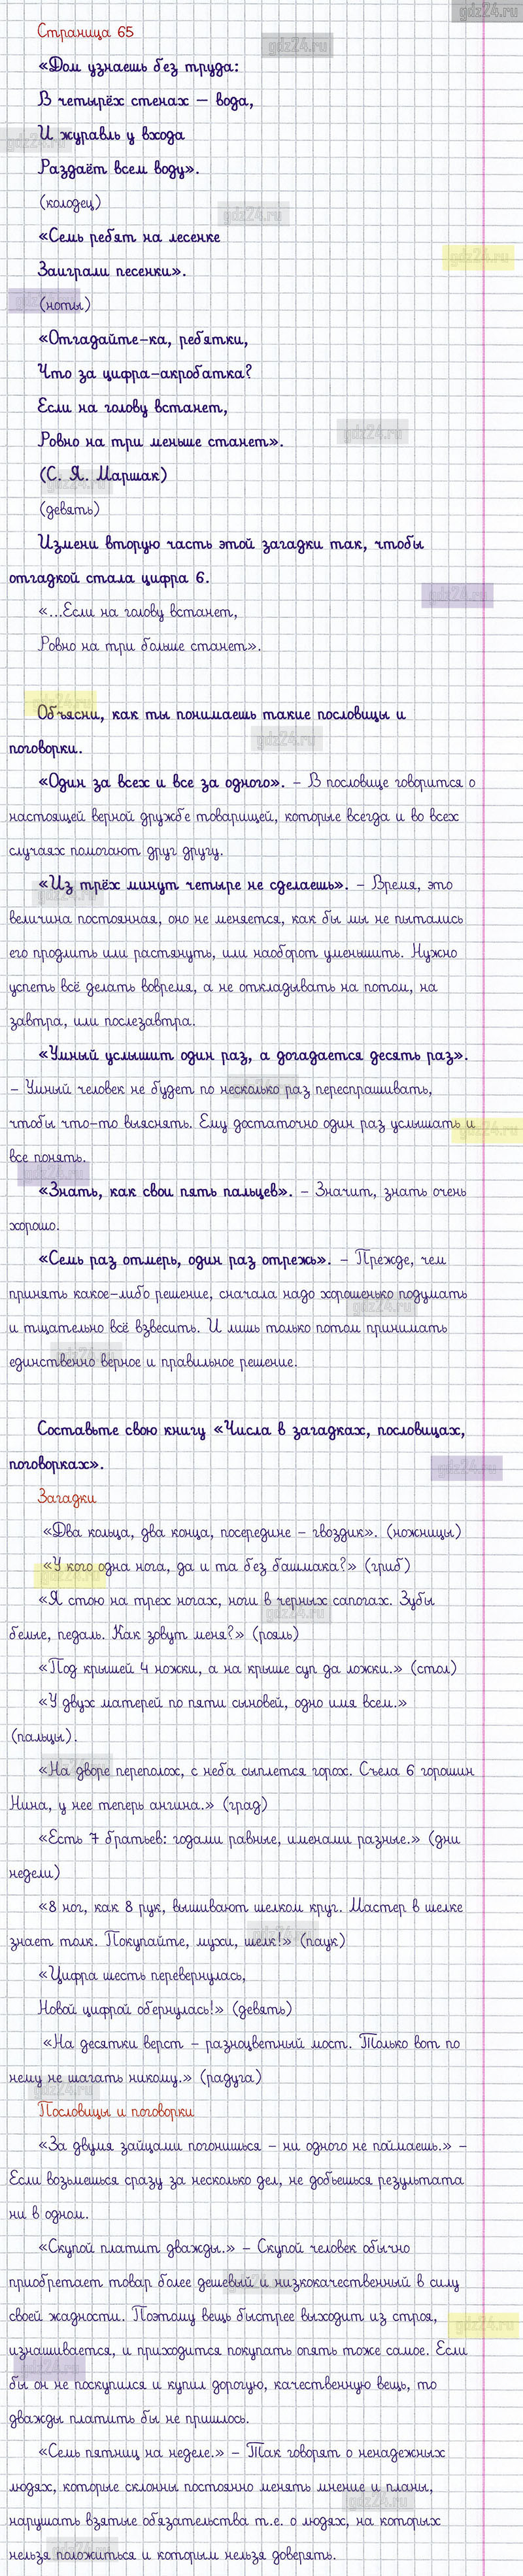 gdz24.ru
Страница 65
«Дом узнаешь без труда:
В четырёх стенах – вода,
И журавль у входа
Раздаёт всем воду».
(колодец)
«Семь ребят на лесенке
Заиграли песенки».
(ноты)
«Отгадайте-ка, ребятки,
Что за цифра-акробатка?
Если на голову встанет,
Ровно на три меньше станет».
(С. Я. Маршак)
(девять)
Измени вторую часть этой загадки так, чтобы
отгадкой стала цифра 6.
«...Если на голову встанет,
Ровно на три больше станет».
Объясни, как ты понимаешь такие пословицы и
поговорки.
«Один за всех и все за одного». – В пословице говорится о
настоящей верной дружбе товарищей, которые всегда и во всех
случаях помогают друг другу.
«Из трёх минут четыре не сделаешь». – Время, это
величина постоянная, оно не меняется, как бы мы не пытались
его продлить или растянуть, или наоборот уменьшить. Нужно
успеть всё делать вовремя, а не откладывать на потом, на
завтра, или послезавтра.
«Умный услышит один раз, а догадается десять раз».
– Умный человек не будет по несколько раз переспрашивать,
чтобы что-то выяснять. Ему достаточно один раз услышать и
все понять.
«Знать, как свои пять пальцев». – Значит, знать очень
хорошо.
«Семь раз отмерь, один раз отрежь». – Прежде, чем
принять какое-либо решение, сначала надо хорошенько подумать
и тщательно всё взвесить. И лишь только потом принимать
единственно верное и правильное решение.
Составьте свою книгу «Числа в загадках, пословицах,
поговорках».
Загадки
«Два кольца, два конца, посередине – гвоздик». (ножницы)
«У кого одна нога, да и та без башмака?» (гриб)
«Я стою на трех ногах, ноги в черных сапогах. Зубы
белые, педаль. Как зовут меня?» (рояль)
«Под крышей 4 ножки, а на крыше суп да ложки.» (стол)
«У двух матерей по пяти сыновей, одно имя всем.»
(пальцы).
«На дворе переполох, с неба сыплется горох. Съела 6 горошин
Нина, у нее теперь ангина.» (град)
«Есть 7 братьев: годами равные, именами разные.» (дни
недели)
«8 ног, как 8 рук, вышивают шелком круг. Мастер в шелке
знает толк. Покупайте, мухи, шелк!» (паук)
«Цифра шесть перевернулась,
Новой цифрой обернулась!» (девять)
«На десятки верст – разноцветный мост. Только вот по
нему не шагать никому.» (радуга)
Пословицы и поговорки
«За двумя зайцами погонишься – ни одного не поймаешь.» –
Если возьмешься сразу за несколько дел, не добьешься результата
ни в одном.
«Скупой платит дважды.» – Скупой человек обычно
приобретает товар более дешевый и низкокачественный в силу
своей жадности. Поэтому вещь быстрее выходит из строя,
изнашивается, и приходится покупать опять тоже самое. Если
бы он не поскупился и купил дорогую, качественную вещь, то
дважды платить бы не пришлось.
«Семь пятниц на неделе.» – Так говорят о ненадежных
людях, которые склонны постоянно менять мнение и планы,
нарушать взятые обязательства т.е. о людях, на которых
нельзя положиться и которым нельзя доверять.